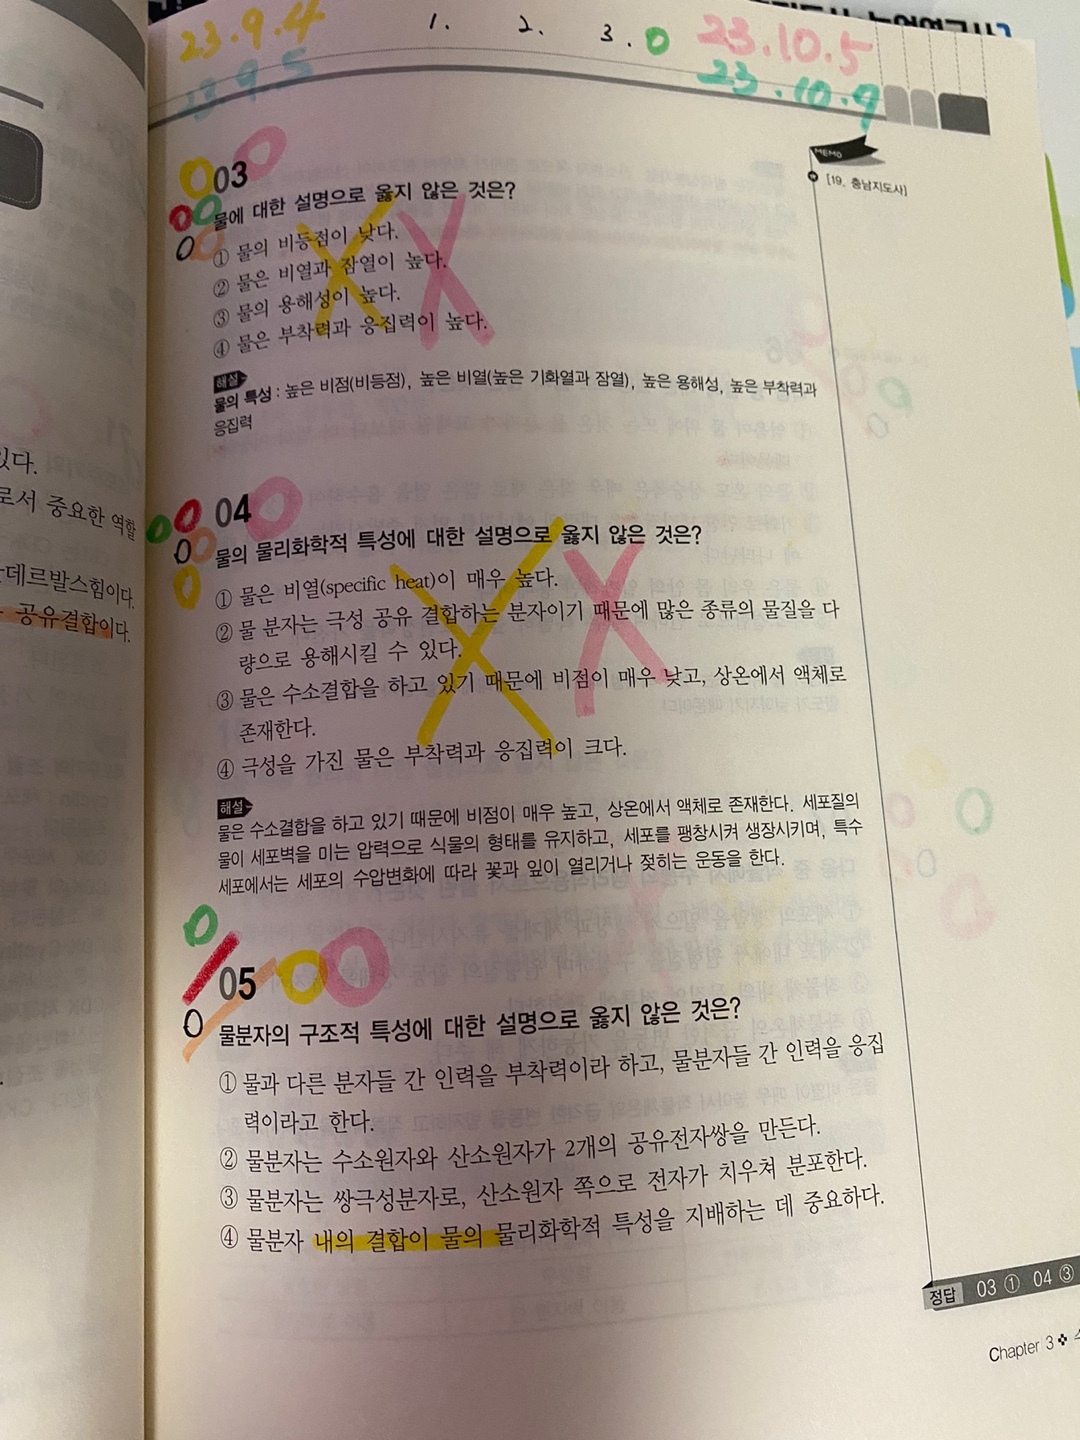 23.9.4
23.9.5
1. 2. 3.
23.10.5
23.10.9
MEMO
[19. 충남지도사]
03
물에 대한 설명으로 옳지 않은 것은?
① 물의 비등점이 낮다.
② 물은 비열과 잠열이 높다.
③ 물의 용해성이 높다.
④ 물은 부착력과 응집력이 높다.
해설
물의 특성 : 높은 비점(비등점), 높은 비열(높은 기화열과 잠열), 높은 용해성, 높은 부착력과
응집력
있다.
로서 중요한 역할
데르발스힘이다.
공유결합이다.
04
물의 물리화학적 특성에 대한 설명으로 옳지 않은 것은?
① 물은 비열(specific heat)이 매우 높다.
② 물 분자는 극성 공유 결합하는 분자이기 때문에 많은 종류의 물질을 다
량으로 용해시킬 수 있다.
③ 물은 수소결합을 하고 있기 때문에 비점이 매우 낮고, 상온에서 액체로
존재한다.
④ 극성을 가진 물은 부착력과 응집력이 크다.
해설
물은 수소결합을 하고 있기 때문에 비점이 매우 높고, 상온에서 액체로 존재한다. 세포질의
물이 세포벽을 미는 압력으로 식물의 형태를 유지하고, 세포를 팽창시켜 생장시키며, 특수
세포에서는 세포의 수압변화에 따라 꽃과 잎이 열리거나 젖히는 운동을 한다.
05
물분자의 구조적 특성에 대한 설명으로 옳지 않은 것은?
① 물과 다른 분자들 간 인력을 부착력이라 하고, 물분자들 간 인력을 응집
력이라고 한다.
② 물분자는 수소원자와 산소원자가 2개의 공유전자쌍을 만든다.
③ 물분자는 쌍극성분자로, 산소원자 쪽으로 전자가 치우쳐 분포한다.
④ 물분자 내의 결합이 물의 물리화학적 특성을 지배하는 데 중요하다.
정답 03 ① 04 ③
Chapter 3